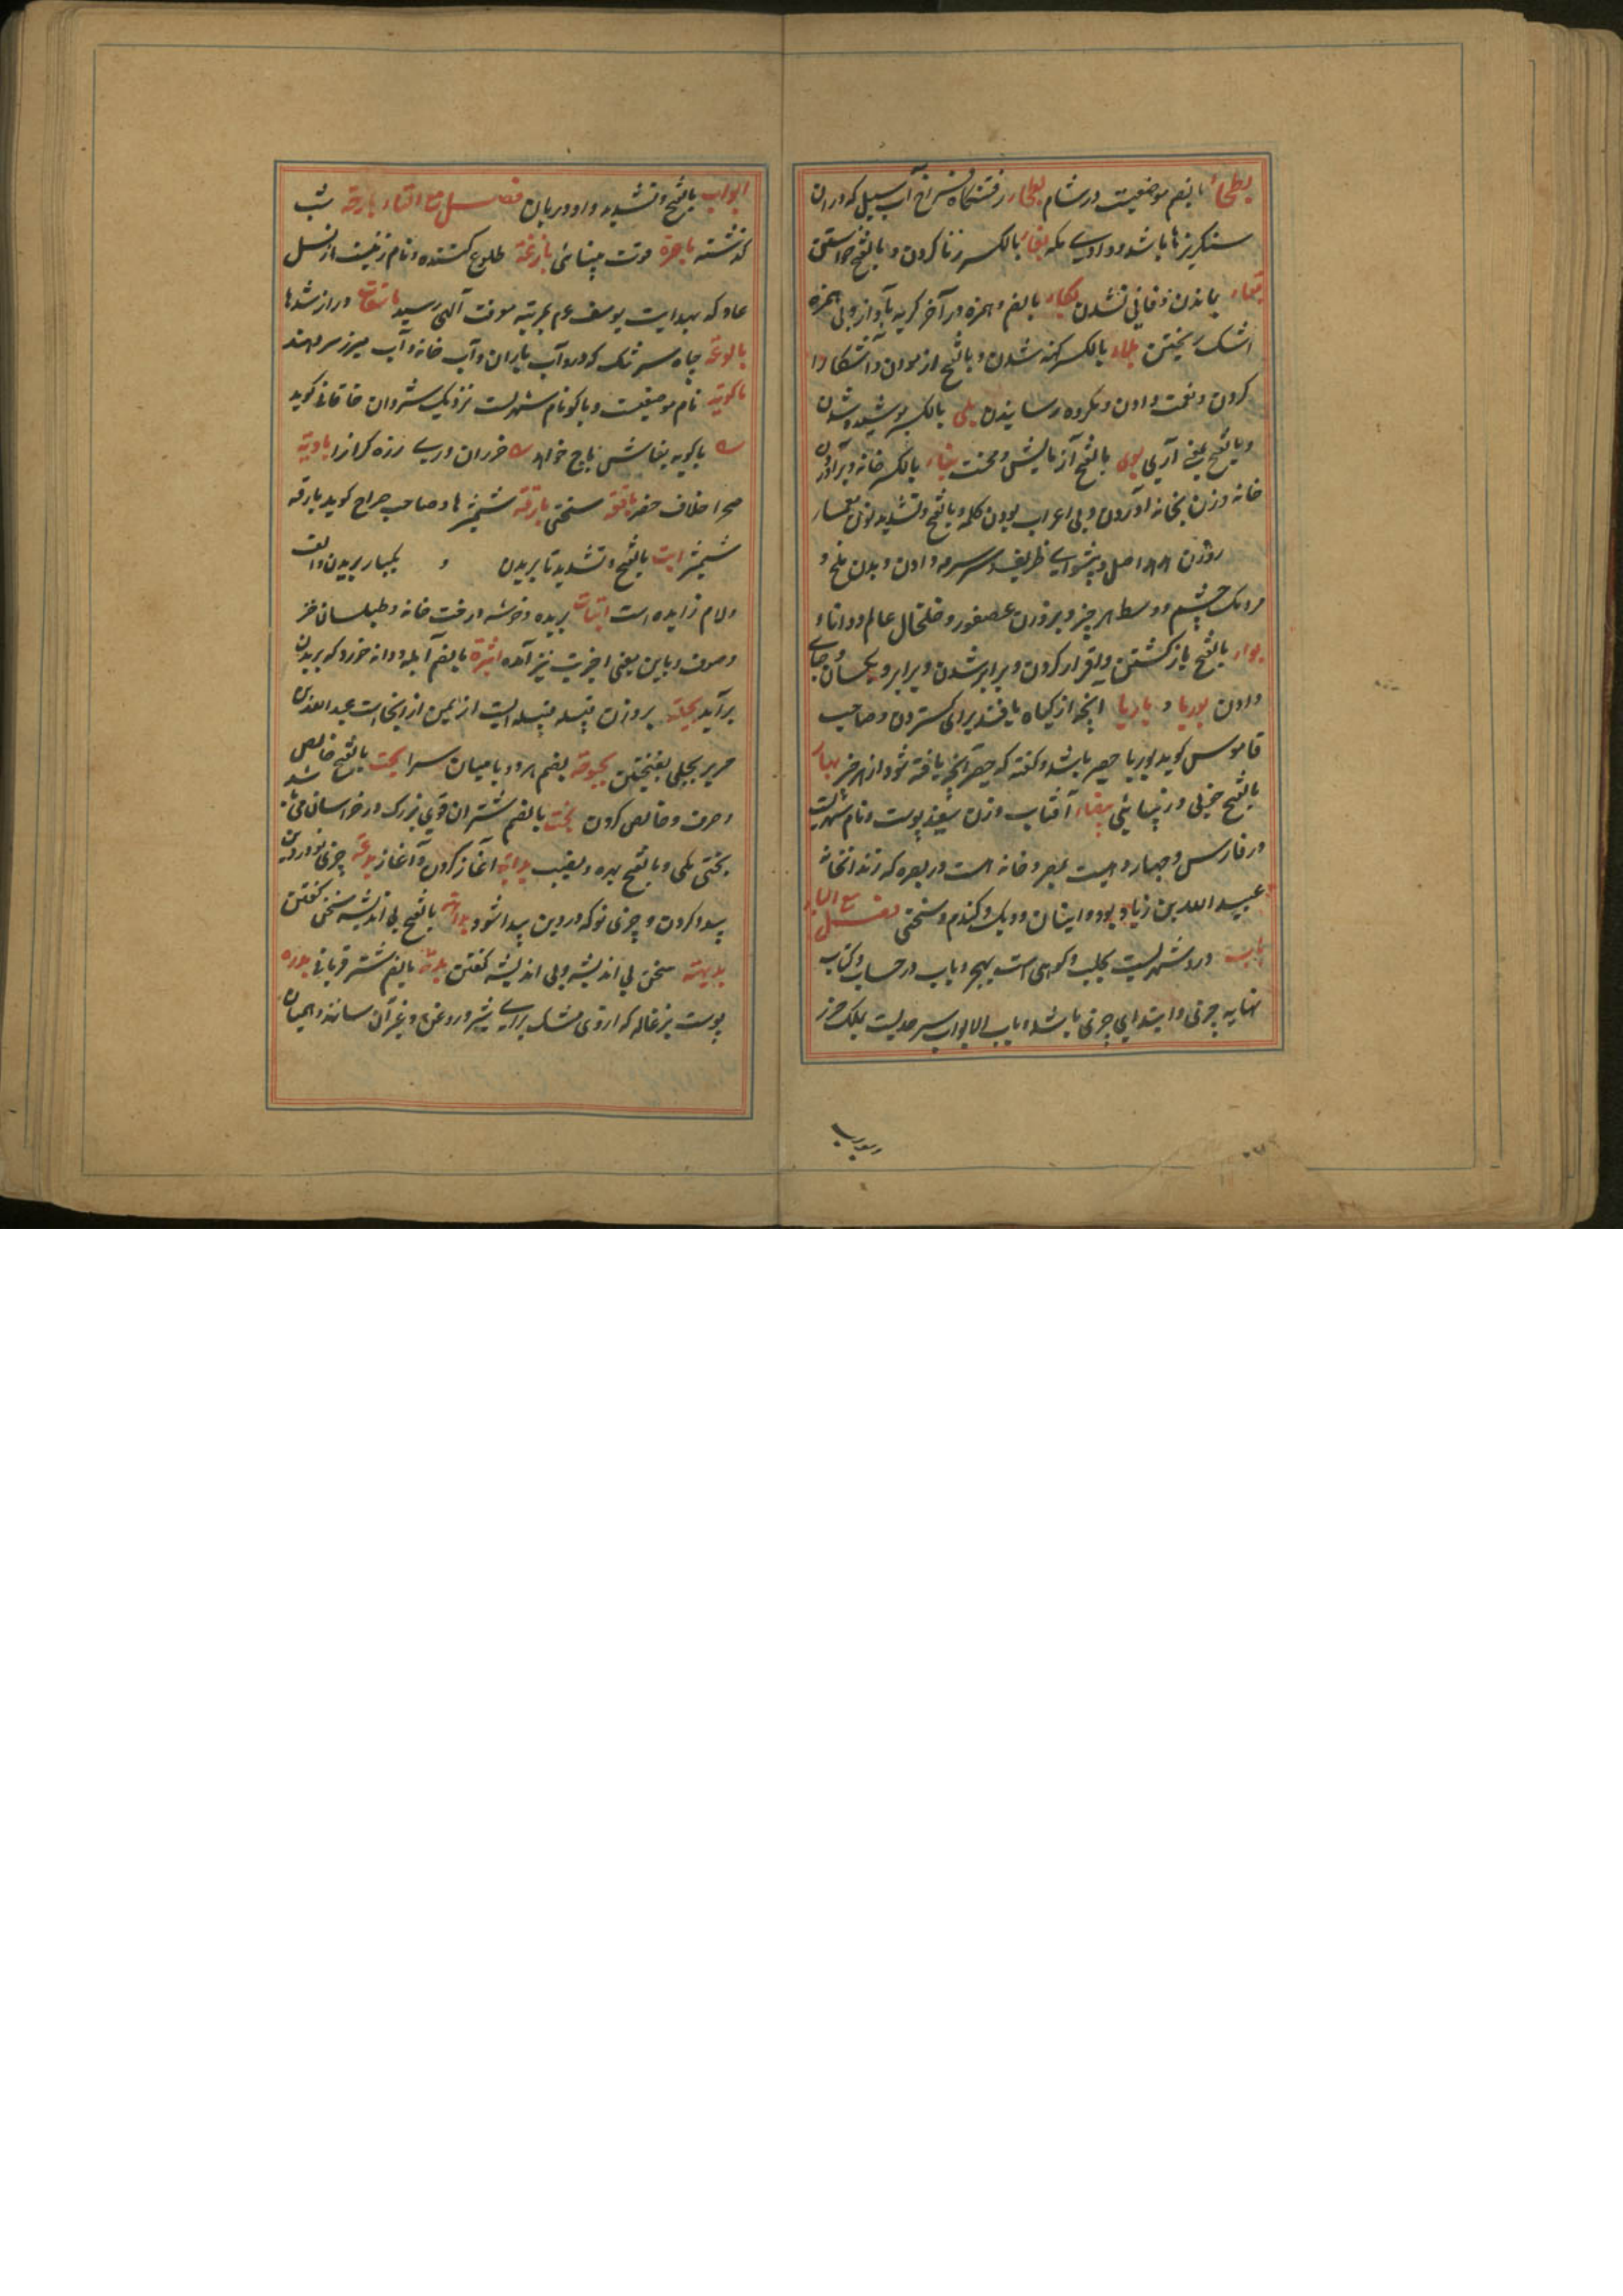 بالضم موضعیست در شام بطحاء رفتنگاه فراخ آب سیل که در ان
سنگریزها باشد و وادی مکه بغاء بالکسر زنا کردن و بالفتح خواستن
بقاء ماندن و فانی نشدن بکاء بالضم و همزه در آخر گریه بآواز و بی همزه
اشک ریختن بلاء بالکسر کهنه شدن و بالفتح ازمودن و آشکارا
کردن و نعمت دادن و مکروه رسانیدن بلی بالکسر پوشیده شدن
و بالفتح بمعنی آری بلوی بالفتح آزمایش و محنت بناء بالکسر خانه و برآوردن
خانه و زن بخانه آوردن و بی اعراب بودن کلمه و بالفتح و تشدید نون معمار
روزن اصل و پیشوای ظریف و سرمه دادن و بدن ملخ و
مردمک چشم و وسط هر چیز و بر وزن عصفور و خلخال عالم و دانا و
بواء بالفتح بازگشتن و اقرار کردن و برابر شدن و برابر و یکسان و جای
دادن بوریا و باریا انچه از گیاه بافند برای گستردن و صاحب
قاموس گوید بوریا حصیر باشد و گفته که حصیر آنچه بافته شود از هر چیز بهاء
بالفتح خوبی و زیبائی بیضاء آفتاب و زن سفید پوست و نام شهریست
در فارس و چهار دهیست بمصر و خانه است در بصره که زندانخانه
عبید الله بن زیاد بوده و اینان و دیک و گندم و سختی فصل مع الباء
باب در و شهریست بحلب و کوهی است بهجر و باب در حساب و کتاب
نهایه چیزی و ابتدای چیزی باشد و باب الابواب سرحدیست بملک خزر
ابواب بالفتح و تشدید واو دربان فصل مع التاء بارحة شب
گذشته باصرة قوت بینائی بازغة طلوع کننده و نام زنیست از نسل
عاد که بهدایت یوسف عم بمرتبه معرفت آلهی رسید باسقات دراز شدها
بالوعة چاه سر تنگ که درو آب باران و آب خانه و آب مبرز سر دهند
باکویة نام موضعیست و باکو نام شهریست نزدیک شروان خاقانی گوید
باکویه بقاش باج خواهد خزران و ری زره گران را بادیة
صحرا خلاف حضر بائقة سختی بارقة شمشیرها و صاحب صراح گوید بارقه
شمشیر ابت بالفتح و تشدید تا بریدن و یکبار بریدن و الف
و لام زایده است ابتات بریده و توشه و رخت خانه و طیلسان خز
و صوف و باین معنی اخیر بت نیز آمده بثرة بالضم آبله و دانه خورد که بر بدن
برآید بجیلة بر وزن قبیله قبیله ایست از یمن از انجاست عبد الله بن
جریر بجلی بفتحتین بحبوحة بضم هر دو با میان سرا بحت بالفتح خالص
و صرف و خالص کردن بخت بالضم شتران قوی بزرگ و در خراسان می باشد
بختی یکی و بالفتح بهره و نصیب بدایة آغاز کردن و آغاز بدعة چیزی نو در دین
پیدا کردن و چیزی نو که در دین پیدا شود بداهة بالفتح بی اندیشه سخن گفتن
بدیهة سخن بی اندیشه و بی اندیشه گفتن بدنة بالضم شتر قربانی بدره
پوست بزغاله که از وی مشک برای شیر و روغن و غیر آن سازند و همیان